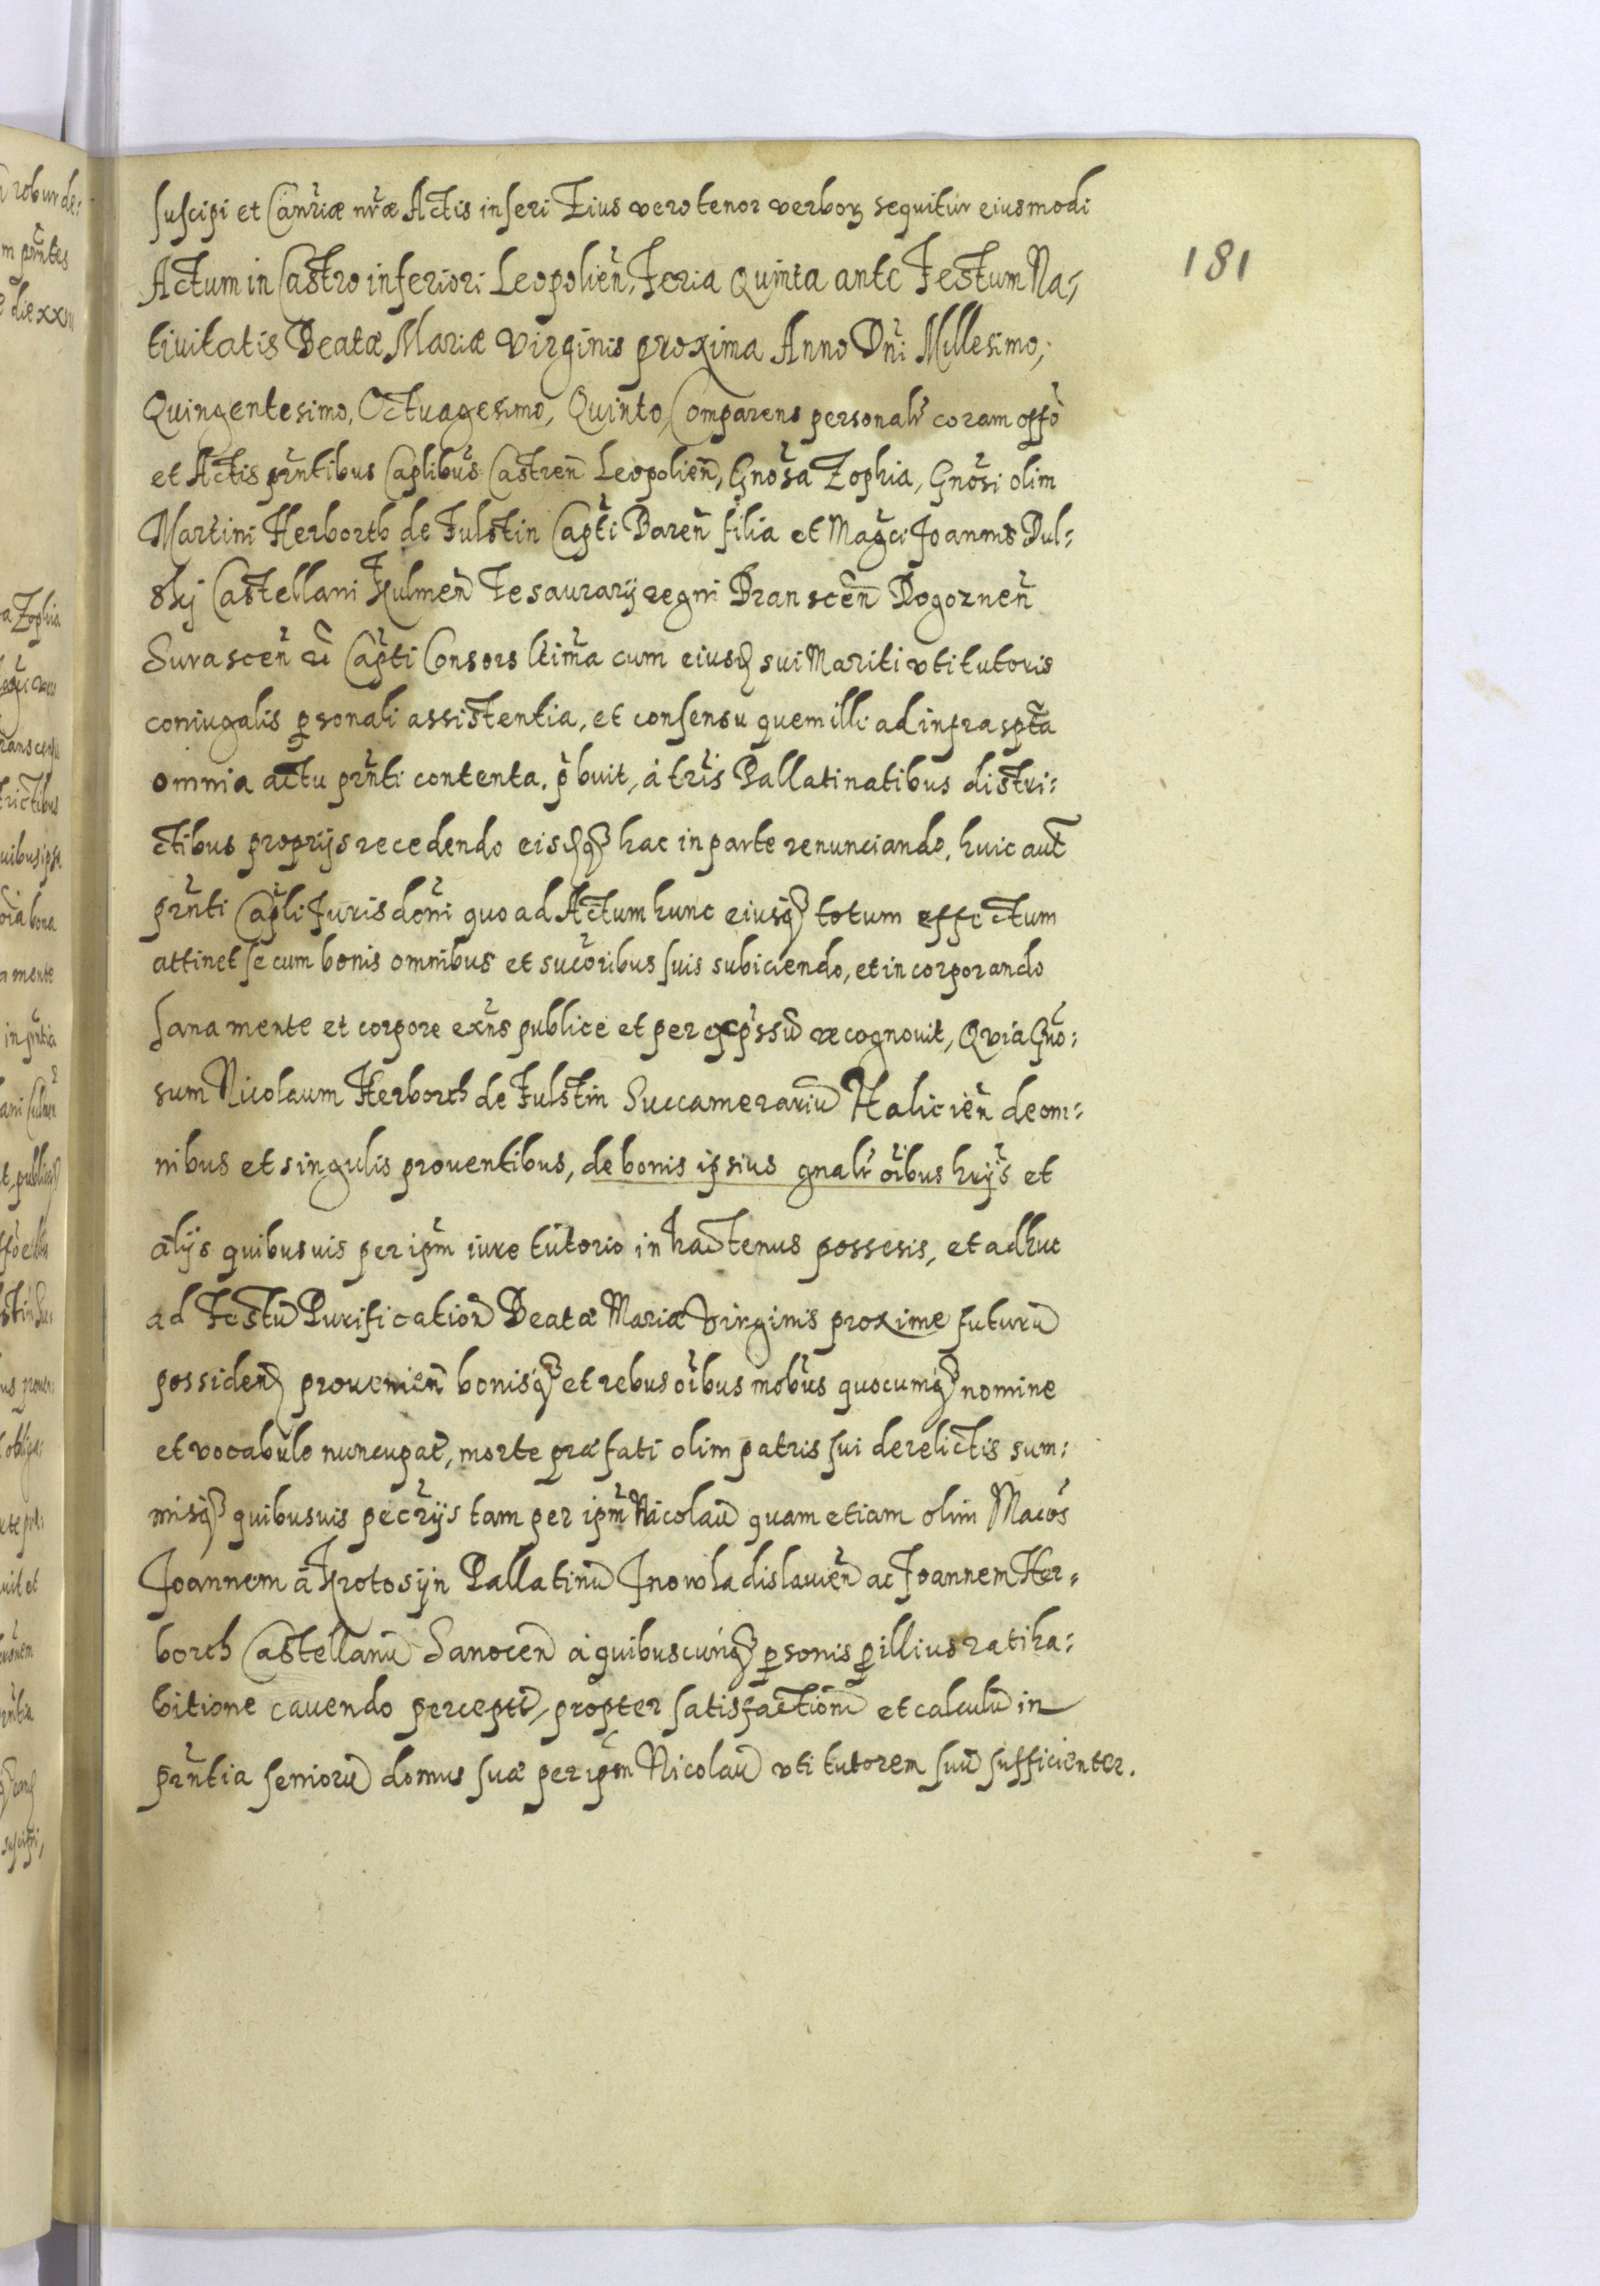 suscipi et Canriæ nræ Actis inseri Eius vero tenor verboꝝ sequitur eiusmodi
181
Actum in Castro inferiori Leopolien̄, Feria Quinta ante Festum Na-
tiuitatis Beatæ Mariæ Virginis proxima Anno Dn̄i Millesimo,
Quingentesimo, Octuagesimo, Quinto, Comparens personalr̄ coram offō
et Actis prn̄tibus Caplibus Castren̄ Leopolien̄, Gnōsa Zophia, Gnōsi olim
Martini Herborth de Fulstin Capt̄i Baren̄ filia et Magc̄i Joannis Dul-
skij Castellani Kulmen̄ Tesaurarij regni Branscen̄ Rogoznen̄
Surascen̄ Capt̄i Consors lt̄ima cum eiusꝗ sui Mariti vti tutoris
coniugalis ꝑsonali assistentia, et consensu quem illi ad infra spt̄a
omnia actu prn̄ti contenta. p̄buit, á tr̄is Pallatinatibus distri-
ctibus proprijs recedendo eisdꝗ hac in parte renunciando, huic aut̄
prn̄ti Capl̄i Jurisdon̄i quo ad Actum hunc eiusqꝫ totum effectum
attinet se cum bonis omnibus et succ̄oribus suis subiciendo, et incorporando
sana mente et corpore exn̄s publice et per exp̄ssū recognouit, Quia Gnō-
sum Nicolaum Herborth de Fulstin Succamerariū Halicien̄ de om-
nibus et singulis prouentibus, de bonis ipsius gnalr̄ oībus hrijs et
alijs quibusuis per ipm̄ iure tutorio in hactenus possesis, et adhuc
ad Festū Purification̄ Beatæ Mariæ Virginis proxime futurū
possidenꝗ prouenien̄ bonisqꝫ et rebus oībus mobus quocumqꝫ nomine
et vocabulo nuncupat̄, morte præfati olim patris sui derelictis sum-
misqꝫ quibusuis pecrijs tam per ipm̄ Nicolaū quam etiam olim Macos
Joannem á Krotosijn Pallatinū Jnowladislauien̄ ac Joannem Her-
borth Castellanū Sanocen̄ á quibuscunqꝫ ꝑsonis ꝑ illius ratiha-
bitione cauendo perceptis, propter satisfactionē et calculū in
prn̄tia seniorū domus suæ per ipm̄ Nicolaū vti tutorem suū sufficienter.